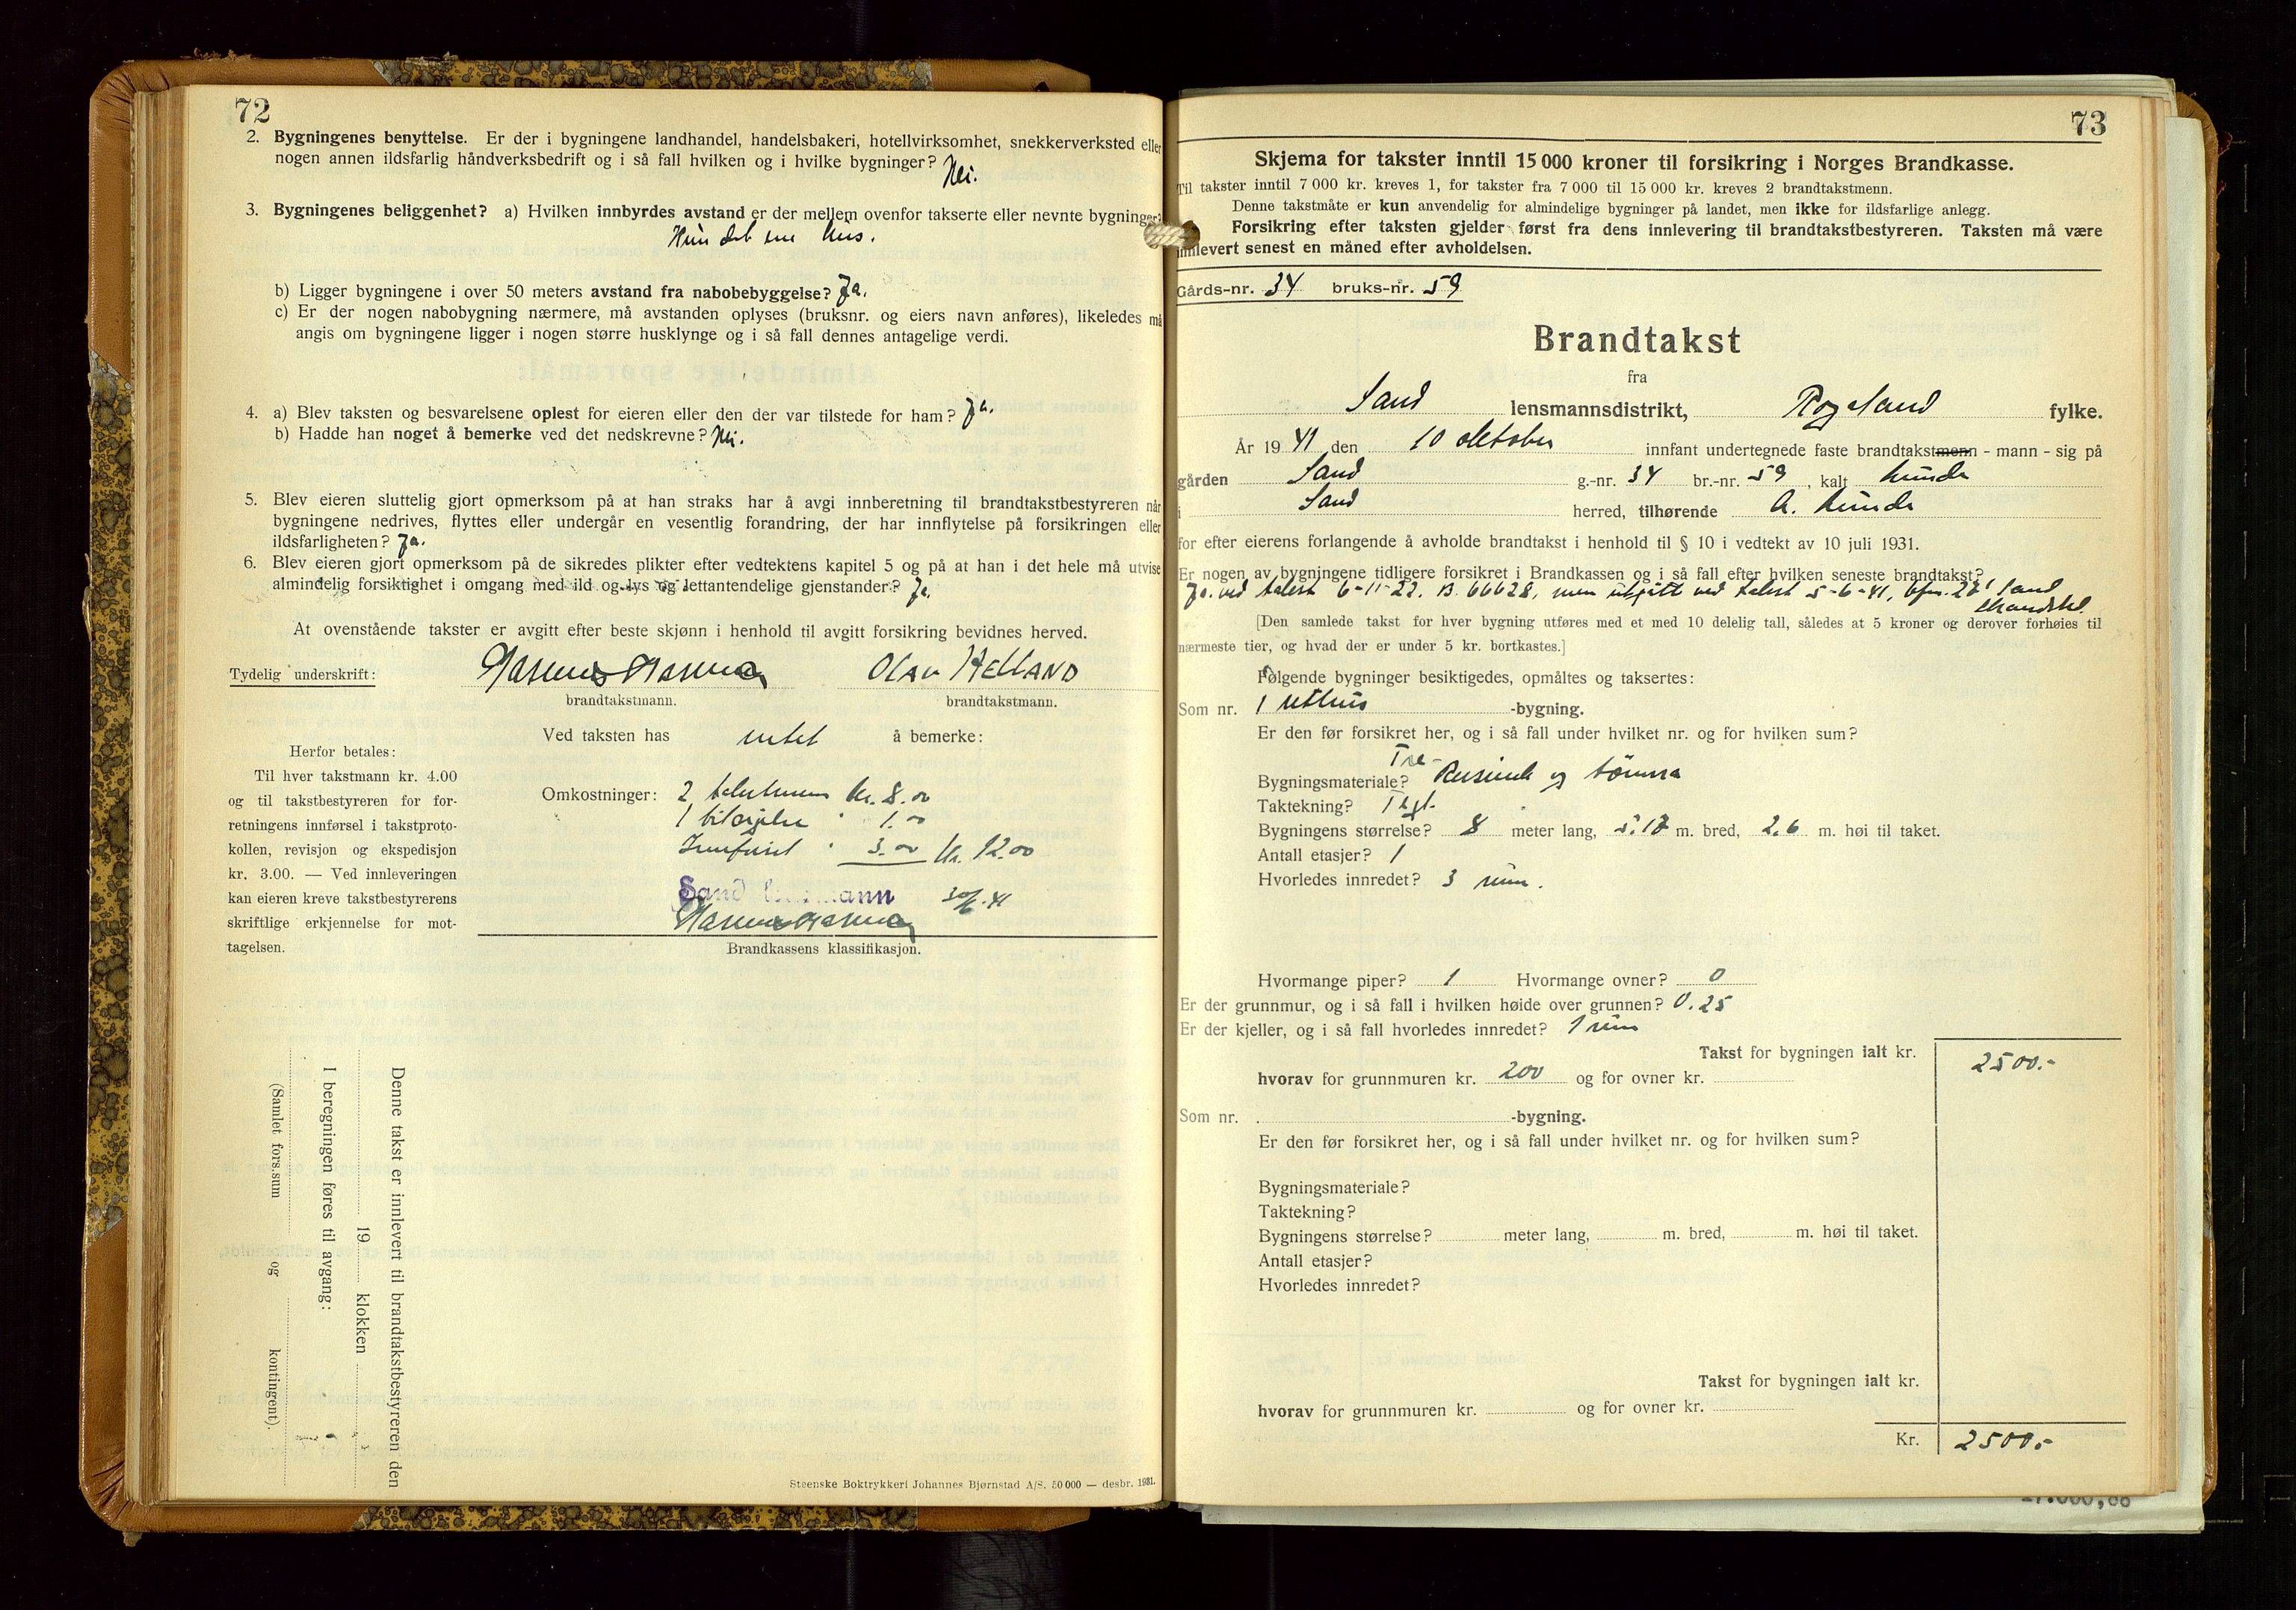 72
2. Bygningenes benyttelse. Er der i bygningene landhandel, handelsbakeri, hotellvirksomhet, snekkerverksted eller
nogen annen ildsfarlig håndverksbedrift og i så fall hvilken og i hvilke bygninger? Nei.
3. Bygningenes beliggenhet? a) Hvilken innbyrdes avstand er der mellem ovenfor takserte eller nevnte bygninger?
Kun det ene hus.
b) Ligger bygningene i over 50 meters avstand fra nabobebyggelse? Ja.
c) Er der nogen nabobygning nærmere, må avstanden oplyses (bruksnr. og eiers navn anføres), likeledes må
angis om bygningene ligger i nogen større husklynge og i så fall dennes antagelige verdi.
4. a) Blev taksten og besvarelsene oplest for eieren eller den der var tilstede for ham? Ja.
b) Hadde han noget å bemerke ved det nedskrevne? Nei.
5. Blev eieren sluttelig gjort opmerksom på at han straks har å avgi innberetning til brandtakstbestyreren når
bygningene nedrives, flyttes eller undergår en vesentlig forandring, der har innflytelse på forsikringen eller
ildsfarligheten? Ja.
6. Blev eieren gjort opmerksom på de sikredes plikter efter vedtektens kapitel 5 og på at han i det hele må utvise
almindelig forsiktighet i omgang med ild og lys og lettantendelige gjenstander? Ja.
At ovenstående takster er avgitt efter beste skjønn i henhold til avgitt forsikring bevidnes herved.
Tydelig underskrift: Olav Helland
brandtakstmann. brandtakstmann.
Ved taksten has intet å bemerke:
Herfor betales:
Til hver takstmann kr. 4.00
og til takstbestyreren for for-
retningens innførsel i takstproto-
kollen, revisjon og ekspedisjon
kr. 3.00. — Ved innleveringen
kan eieren kreve takstbestyrerens
skriftlige erkjennelse for mot-
tagelsen.
Omkostninger: 2 takstmenn kr. 8.00
1 " 1.00
" 3.00 kr. 12.00
Sand lensmann 30/6-41
Brandkassens klassifikasjon.
Denne takst er innlevert til brandtakstbestyreren den
19 klokken
I beregningen føres til avgang:
(Samlet fors.sum og kontingent).
Steenske Boktrykkeri Johannes Bjørnstad A/S. 50 000 — desbr. 1931.
73
Skjema for takster inntil 15 000 kroner til forsikring i Norges Brandkasse.
Til takster inntil 7 000 kr. kreves 1, for takster fra 7 000 til 15 000 kr. kreves 2 brandtakstmenn.
Denne takstmåte er kun anvendelig for almindelige bygninger på landet, men ikke for ildsfarlige anlegg.
Forsikring efter taksten gjelder først fra dens innlevering til brandtakstbestyreren. Taksten må være
innlevert senest en måned efter avholdelsen.
Gårds-nr. 34 bruks-nr. 59
Brandtakst
fra
Sand lensmannsdistrikt, Rogaland fylke.
År 1941 den 10 oktober innfant undertegnede faste brandtakstmenn - mann - sig på
gården Sand g.-nr. 34 br.-nr. 59, kalt Lunde
i Sand herred, tilhørende A. Lunde
for efter eierens forlangende å avholde brandtakst i henhold til § 10 i vedtekt av 10 juli 1931.
Er nogen av bygningene tidligere forsikret i Brandkassen og i så fall efter hvilken seneste brandtakst?
Ja. ved takst 6-11-22. B. 66628, men utgått ved takst 5-6-41, Sand
[Den samlede takst for hver bygning utføres med et med 10 delelig tall, således at 5 kroner og derover forhøies til
nærmeste tier, og hvad der er under 5 kr. bortkastes.]
Følgende bygninger besiktigedes, opmåltes og taksertes:
Som nr. 1 uthus -bygning.
Er den før forsikret her, og i så fall under hvilket nr. og for hvilken sum?
Tre-
Bygningsmateriale? Reisverk og tømra
Taktekning? Tegl.
Bygningens størrelse? 8 meter lang, m. bred, 2.6 m. høi til taket.
Antall etasjer? 1
Hvorledes innredet? 3 rum.
Hvormange piper? 1 Hvormange ovner? 0
Er der grunnmur, og i så fall i hvilken høide over grunnen? 0.25
Er der kjeller, og i så fall hvorledes innredet? 1 rum
Takst for bygningen ialt kr. 2500.-
hvorav for grunnmuren kr. 200 og for ovner kr.
Som nr. -bygning.
Er den før forsikret her, og i så fall under hvilket nr. og for hvilken sum?
Bygningsmateriale?
Taktekning?
Bygningens størrelse? meter lang, m. bred, m. høi til taket.
Antall etasjer?
Hvorledes innredet?
Takst for bygningen ialt kr.
hvorav for grunnmuren kr. og for ovner kr.
Kr. 2500.-